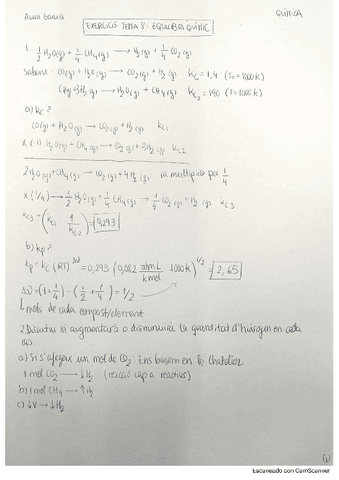 QUÍMICA
EXERCICIS TEMA 8: EQUILIBRI QUÍMIC
1. 1/2 H₂O(g) + 1/4 CH₄(g) → H₂(g) + 1/4 CO₂(g)
CO(g) + H₂O(g) → CO₂(g) + H₂(g) Kc = 1,4 (T = 1000K)
CO(g) + 3H₂(g) → H₂O(g) + CH₄(g) Kc₂ = 190 (T = 1000K)
a) Kc?
CO(g) + H₂O(g) → CO₂(g) + H₂(g) Kc₁
x(-1) H₂O(g) + CH₄(g) → CO(g) + 3H₂(g) Kc₂
2H₂O(g) + CH₄(g) → CO₂(g) + 4H₂(g) multiplico per 1/4
x(1/4) → 1/2 H₂O(g) + 1/4 CH₄(g) → 1/4 CO₂(g) + H₂(g) Kc₃
Kc₃ = (Kc₁ · 1/Kc₂) = 0,293
b) Kp?
Kp = Kc (RT)^Δν = 0,293 (0,082 atm L/K mol 1000K)^1/2 = 2,65
Δν = (1 + 1/4) - (1/2 + 1/4) = 1/2
mols de cada compost/element
2. Discutiu si augmentarà o disminuirà la quantitat d'hidrogen en cada
cas.
a) Si s'afegeix un mol de CO₂: Ens basem en le Chatelier
1 mol CO₂ → ↓H₂ (reacció cap a reactius)
b) 1 mol CH₄ → ↑H₂
c) ↓V → ↓H₂
1
Escaneado con CamScanner